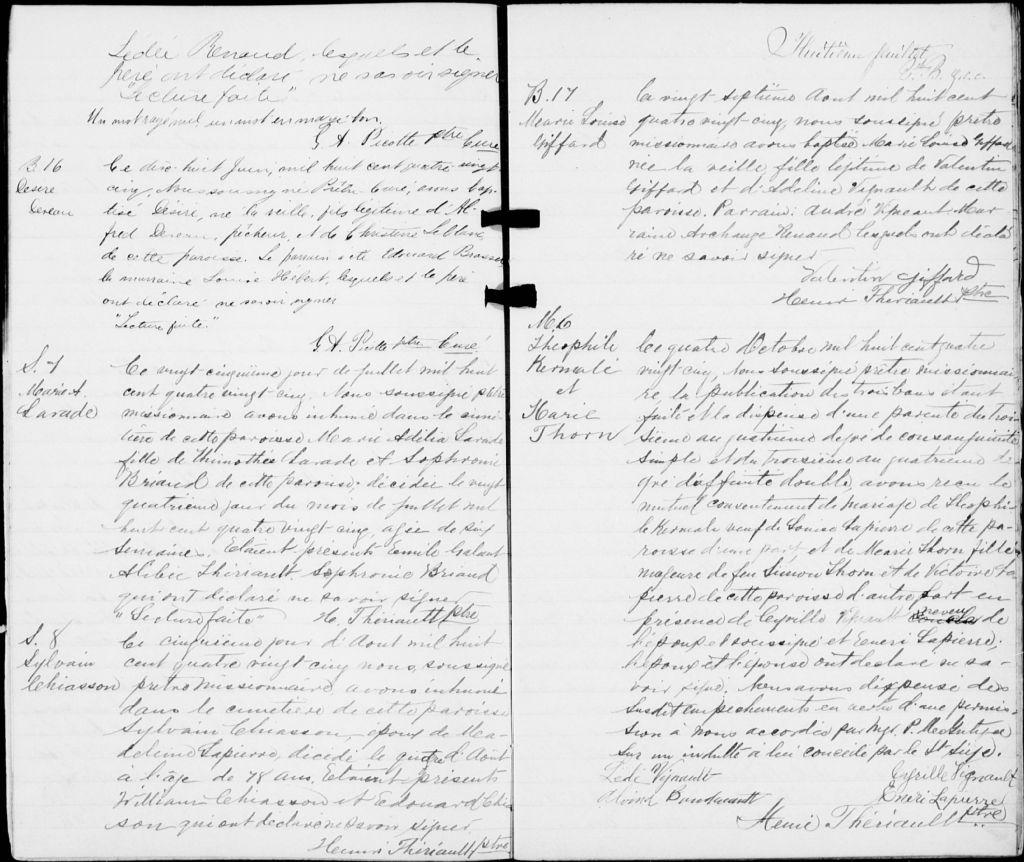 Lédée Renaud, lesquels et le
père ont déclaré ne savoir signer
"Lecture faite".
Un mot rayé nul un mot en marge bon.
G. A. Picotte ptre Curé
B. 16
Desiré
Dereau
Ce dix huit Juin, mil huit cent quatre vingt
cinq, Nous soussigné Prêtre Curé, avons bap-
tisé Désiré, né la veille, fils légitime d'Al-
fred Dereau, pêcheur, et de Christine Leblanc
de cette paroisse. Le parrain a été Edouard
la marraine Louise Hébert, lesquels et le père
ont déclaré ne savoir signer
"Lecture faite."
G. A. Picotte ptre Curé
S. 7
Marie A.
Lavade
Ce vingt cinquième jour de juillet mil huit
cent quatre vingt cinq, Nous soussigné prêtre
missionnaire avons inhumé dans le cime-
tière de cette paroisse Marie Adélia Lavade
fille de Thimothée Lavade et Sophronie
Briand de cette paroisse; décédée le vingt
quatrième jour du mois de juillet mil
huit cent quatre vingt cinq, agée de six
semaines. Etaient présents Emile Galant
Alibée Thériault. Sophronie Briand
qui ont déclaré ne savoir signer
"Lecture faite" H. Thériault ptre
S. 8
Sylvain
Chiasson
Ce cinquième jour d'Aout mil huit
cent quatre vingt cinq nous, soussigné
pretre missionnaire avons inhumé
dans le cimetière de cette paroisse
Sylvain Chiasson, époux de Ma-
deleine Lapierre, décédé le quatre d'Aout
à l'âge de 78 ans, Etaient présents
William Chiasson et Edouard Chias
son qui ont déclaré ne savoir signer
Henri Thériault ptre
Huitième feuillet
B. 17
Marie Louise
Giffard
Ce vingt septième Aout mil huit cent
quatre vingt cinq, nous soussigné prêtre
missionnaire avons baptisé Marie Louise Giffard
née la veille, fille légitime de Valentin
Giffard et d'Adeline Vignault de cette
paroisse. Parrain: André Vigneault Mar-
raine Archange Renaud lesquels ont décla-
ré ne savoir signer
Valentin Giffard
Henri Thériault ptre
M 6
Théophile
Kermale
et
Marie
Thorn
Ce quatre d'Octobre mil huit cent quatre
vingt cinq, Nous soussigné prêtre missionnai-
re, la publication des trois bans étant
faite et la dispense d'une parenté du troi-
sième au quatrième degré de consanguinité
simple et du troisième au quatrième de-
gré d'affinité double, avons reçu le
mutuel consentement de mariage de Théophi-
le Kermale veuf de Louise Lapierre de cette pa-
roisse d'une part et de Marie Thorn fille
majeure de feu Simon Thorn et de Victoire La
pierre de cette paroisse d'autre part en
présence de Cyrille Vignault neveu de
l'époux et soussigné et Eneri Lapierre;
l'époux et l'épouse ont déclaré ne sa-
voir signer. Nous avons dispensé des
susdits empêchements en vertu d'une permis-
sion à nous accordée par Mgr. P. McIntyre
sur un indulte à lui concédé par le St Siège.
Lédé Vignault
Cyrille Vignault
Eneri Lapierre
Henri Thériault ptre